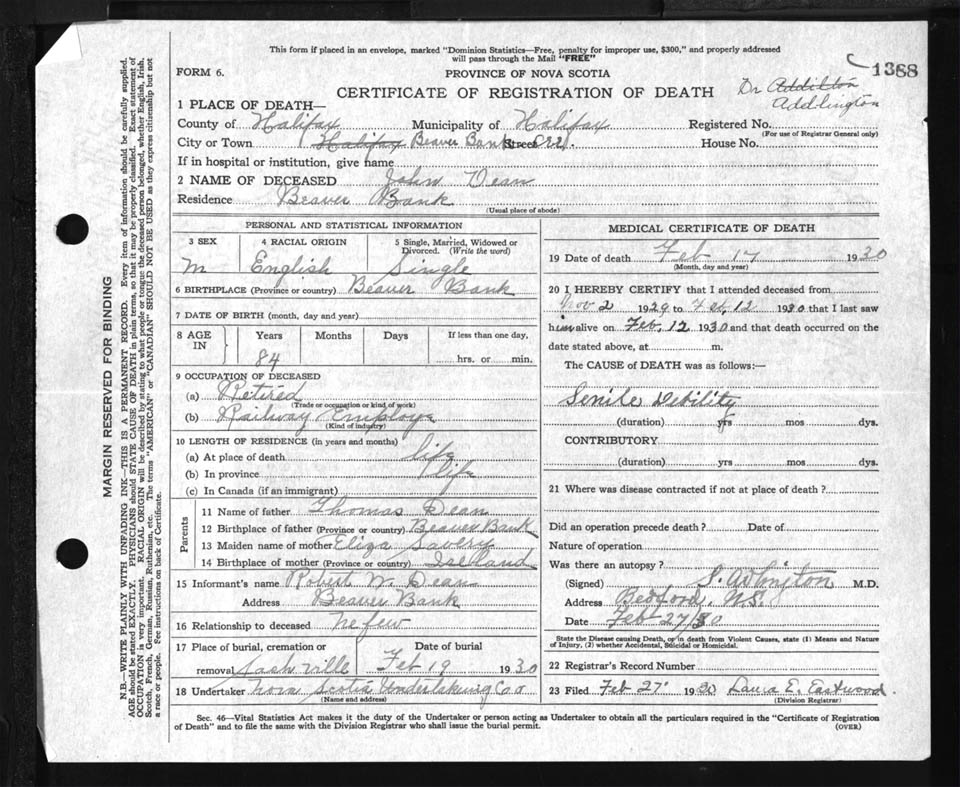 This form if placed in an envelope, marked "Dominion Statistics—Free, penalty for improper use, $300," and properly addressed
will pass through the Mail "FREE"
FORM 6.
PROVINCE OF NOVA SCOTIA
1388
CERTIFICATE OF REGISTRATION OF DEATH
Dr Addilton
Addlington
1 PLACE OF DEATH—
County of Halifax Municipality of Halifax Registered No.
(For use of Registrar General only)
City or Town Halifax Beaver Bank Street House No.
If in hospital or institution, give name
2 NAME OF DECEASED John Dean
Residence Beaver Bank
(Usual place of abode)
PERSONAL AND STATISTICAL INFORMATION
3 SEX 4 RACIAL ORIGIN 5 Single, Married, Widowed or Divorced. (Write the word)
M English Single
6 BIRTHPLACE (Province or country) Beaver Bank
7 DATE OF BIRTH (month, day and year)
8 AGE IN Years Months Days If less than one day,
84 hrs. or min.
9 OCCUPATION OF DECEASED
(a) Retired
(Trade or occupation or kind of work)
(b) Railway Employe
(Kind of industry)
10 LENGTH OF RESIDENCE (in years and months)
(a) At place of death life
(b) In province life
(c) In Canada (if an immigrant)
Parents
11 Name of father Thomas Dean
12 Birthplace of father (Province or country) Beaver Bank
13 Maiden name of mother Eliza Savery
14 Birthplace of mother (Province or country) Iseland
15 Informant's name Robert W. Dean
Address Beaver Bank
16 Relationship to deceased nefew
17 Place of burial, cremation or Date of burial
removal Sackville Feb 19 1930
18 Undertaker Nova Scotia Undertaking Co
(Name and address)
MEDICAL CERTIFICATE OF DEATH
19 Date of death Feb 17 1930
(Month, day and year)
20 I HEREBY CERTIFY that I attended deceased from
Nov 2 1929 to Feb, 12 1930 that I last saw
him alive on Feb, 12 1930 and that death occurred on the
date stated above, at m.
The CAUSE of DEATH was as follows:—
Senile Debility
(duration) yrs mos dys.
CONTRIBUTORY
(duration) yrs mos dys.
21 Where was disease contracted if not at place of death ?
Did an operation precede death ? Date of
Nature of operation
Was there an autopsy ?
(Signed) M.D.
Address Bedford, N.S.
Date Feb 27/30
State the Disease causing Death, or in death from Violent Causes, state (1) Means and Nature
of Injury, (2) whether Accidental, Suicidal or Homicidal.
22 Registrar's Record Number
23 Filed Feb 27 1930 Laura E. Eastwood
(Division Registrar)
Sec. 46—Vital Statistics Act makes it the duty of the Undertaker or person acting as Undertaker to obtain all the particulars required in the "Certificate of Registration
of Death" and to file the same with the Division Registrar who shall issue the burial permit.
(OVER)
MARGIN RESERVED FOR BINDING
N.B.—WRITE PLAINLY WITH UNFADING INK—THIS IS A PERMANENT RECORD. Every item of information should be carefully supplied.
AGE should be stated EXACTLY. PHYSICIANS should STATE CAUSE OF DEATH in plain terms, so that it may be properly classified. Exact statement of
OCCUPATION is very important. RACIAL ORIGIN will be described by stating to what people or tongue the deceased person belonged, whether English, Irish,
Scotch, French, German, Russian, Ruthenian, etc. The terms "AMERICAN" or "CANADIAN" SHOULD NOT BE USED as they express citizenship but not
a race or people. Fee instructions on back of Certificate.